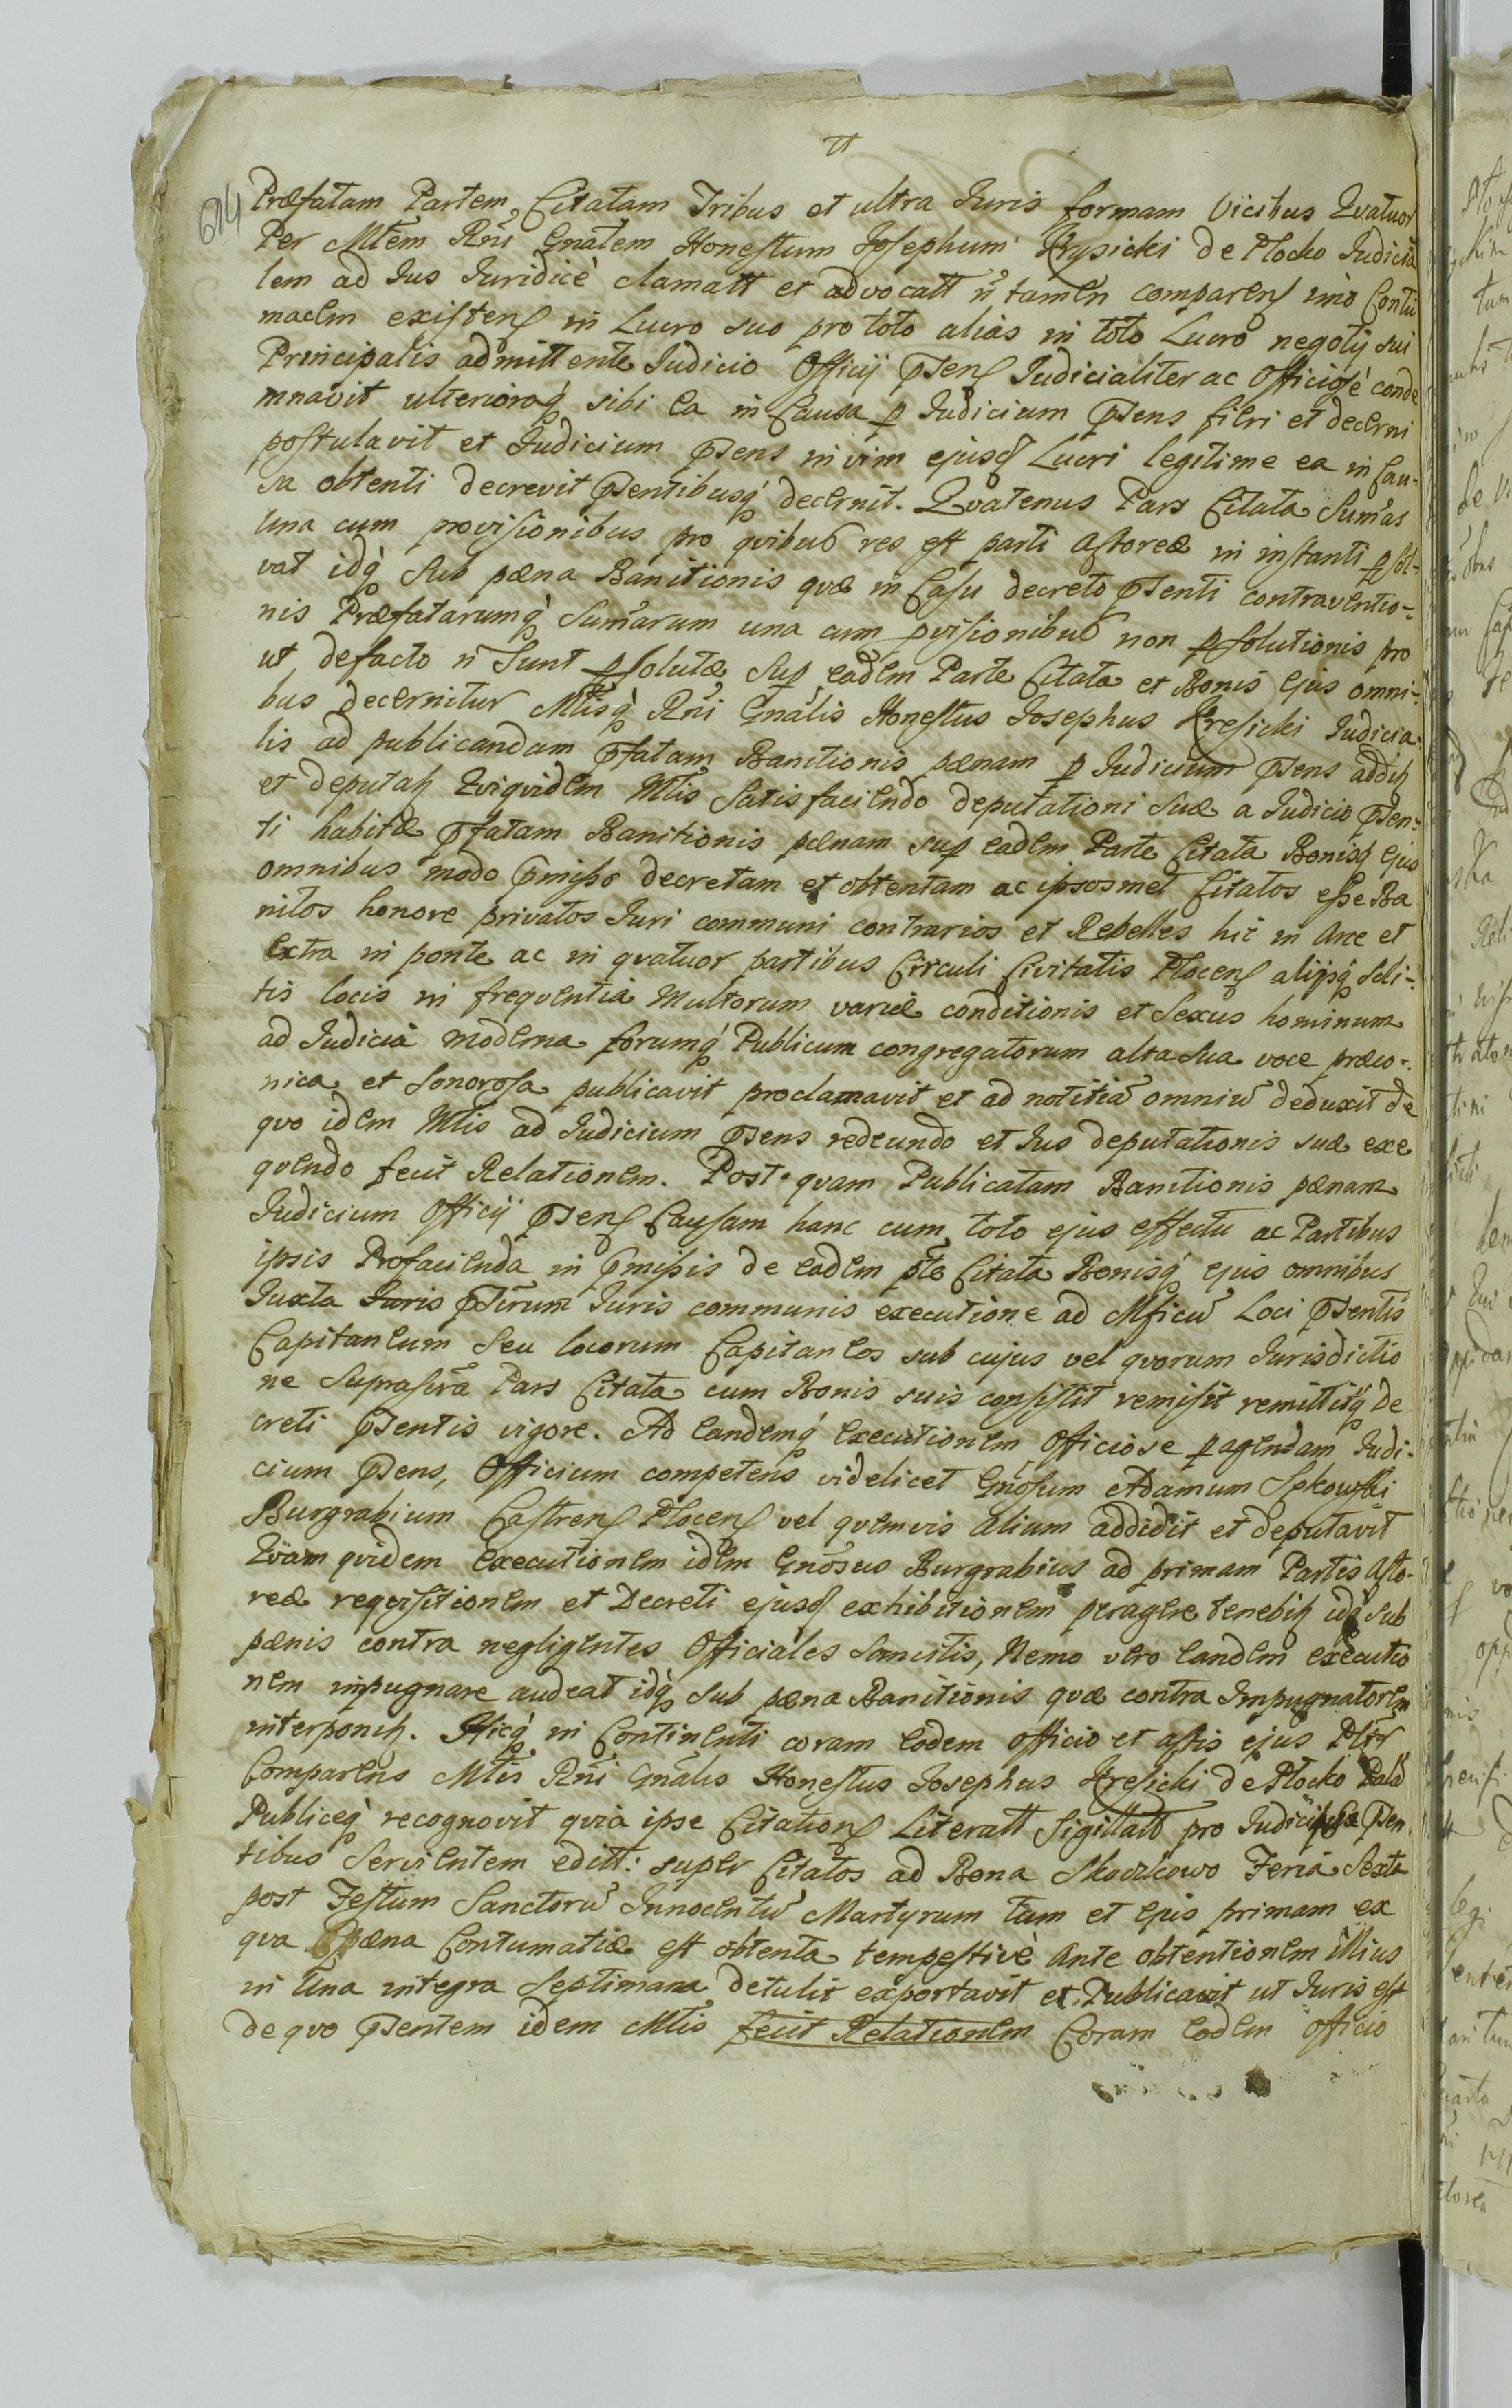 614
Præfatam Partem Citatam Tribus et ultra Iuris formam Vicibus Qvatuor
Per Mtem Rñi Gnalem Honestum Josephum Krysicki de Plocko Judicia
lem ad Jus Juridicè clamatt et advocatt ñ tamen comparens imò Contu
macem existens in Lucro suo pro toto alias in toto Lucro negotij sui
Principalis admittente Judicio Officij Pñens Judicialiter ac Officiosè conde
mnavit ulterioraq́ sibi ea in Causa p Judicium Pñens fieri et decerni
postulavit et Judicium Pñens in vim ejusd Lucri legitime ea in Cau-
sa obtenti decrevit Pñentibusq́ decernit. Qvatenus Pars Citata Sum̃as
una cum provisionibus pro qvibus res est parti Actoreæ in instanti p sol-
vat idq́ Sub pæna Banitionis qvæ in Casu decreto Pñenti contraventio-
nis Præfatarumq́ Sum̃arum una cum pvisionibus non p solutionis pro
ut defacto ñ Sunt p solutæ Sup eadem Parte Citata et Bonis ejus omni-
bus decernitur Mtisq́ Rñi Gnalis Honestus Josephus Kresicki Judicia-
lis ad publicandam Pfatam Banitionis pænam p Judicium Pñens addit
et deputat Qviqvidem Mtis Satisfaciendo deputationi Suæ a Judicio Pñen-
ti habitæ Pfatam Banitionis pænam sup eadem Parte Citata Bonisq ejus
omnibus modo Pmisso decretam et obtentam ac ipsosmet Citatos esse Ba
nitos honore privatos Juri communi contrarios et Rebelles hic in Arce et
Extra in ponte ac in qvatuor partibus Circuli Civitatis Plocens alijsq́ Soli-
tis locis in freqventia Multorum variæ conditionis et Sexus hominum
ad Judicia moderna forumq́ Publicum congregatorum alta Sua voce præco-
nica et Sonorosa publicavit proclamavit et ad notitiã omniũ deduxit de
qvo idem Mtis ad Judicium Pñens redeundo et Jus deputationis suæ exe
qvendo fecit Relationem. Post qvam Publicatam Banitionis pænam
Judicium Officij Pñens Causam hanc cum toto ejus effectu ac Partibus
ipsis Pro facienda in Pmissis de eadem pte Citata Bonisq́ ejus omnibus
Juxta Juris Ptrum Juris communis executione ad Mficũ Loci Pñentis
Capitaneum Seu locorum Capitaneos sub cujus vel qvorum Jurisdictio
ne Suprascrã Pars Citata cum Bonis suis consistit remisit remittitq́ De
creti Pñentis vigore. Ad eandemq́ executionem Officiose p agendam Judi-
cium Pñens, Officium competens videlicet Gnosum Adamum Sykowski
Burgrabium Castrens Plocens vel qvemvis alium addidit et deputavit
Qvam qvidem executionem idem Gnosus Burgrabius ad primam Partis Acto-
reæ reqvisitionem et Decreti ejusd exhibitionem peragere tenebit idq́ sub
pænis contra negligentes Officiales Sancitis, Nemo vero eandem executio
nem impugnare audeat idq́ sub pæna Banitionis qvæ contra Impugnatorem
interponit. Hicq́ in Continenti coram eodem officio et actis ejus
Comparens Mtis Rñi Gnalis Honestus Josephus Kresicki de Plocko Palã
Publiceq́ recognovit qvia ipse Citations Literatt Sigillatt pro Judicijs Pñen
tibus Servientem editt: super Citatos ad Bona Skoczkowo Feria Sexta
post Festum Sanctorũ Innocentiũ Martyrum tum et ejus primam ex
qva pæna Contumatiæ est obtenta tempestivè Ante obtentionem illius
in Una integra Septimana detulit exportavit et Publicavit ut Juris est
de qvo Pñentem idem Mtis fecit Relationem Coram eodem officio